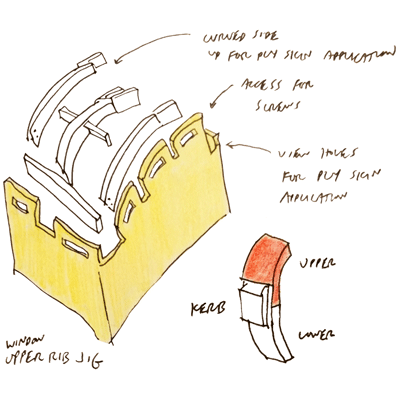 CURVED SIDE
UP FOR PLY SKIN APPLICATION
ACCESS FOR
SCREWS
VIEW HOLES
FOR PLY SKIN
APPLICATION
UPPER
KERB
LOWER
WINDOW
UPPER RIB JIG